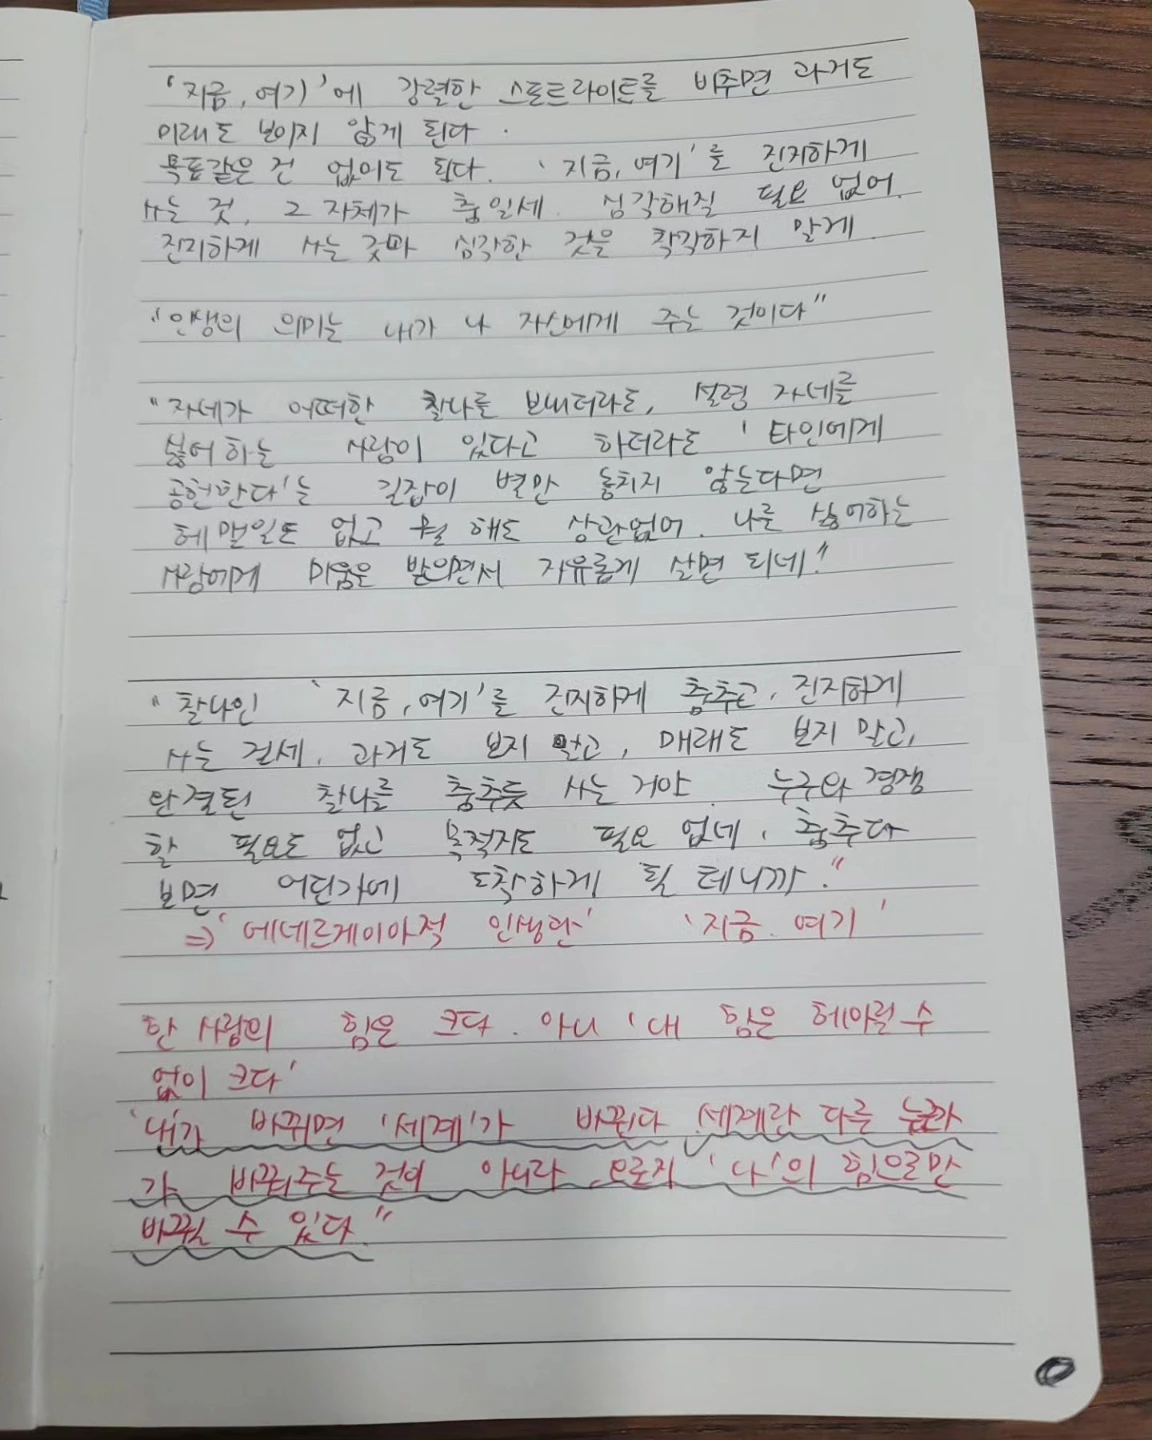 '지금, 여기'에 강렬한 스포트라이트를 비추면 과거도
미래도 보이지 않게 된다.
목표같은 건 없어도 된다. '지금, 여기'를 진지하게
사는 것, 그 자체가 춤일세. 심각해질 필요 없어.
진지하게 사는 것과 심각한 것을 착각하지 말게.
"인생의 의미는 내가 나 자신에게 주는 것이다"
"자네가 어떠한 찰나를 보내더라도, 설령 자네를
싫어하는 사람이 있다고 하더라도 '타인에게
공헌한다'는 길잡이 별만 놓치지 않는다면
헤맬일도 없고 뭘 해도 상관없어. 나를 싫어하는
사람에게 미움을 받으면서 자유롭게 살면 되네."
"찰나인 '지금, 여기'를 진지하게 춤추고, 진지하게
사는 걸세. 과거도 보지 말고, 미래도 보지 말고,
완결된 찰나를 춤추듯 사는 거야. 누구와 경쟁
할 필요도 없고 목적지도 필요 없네. 춤추다
보면 어딘가에 도착하게 될 테니까."
=> '에네르게이아적 인생' '지금. 여기'
한 사람의 힘은 크다. 아니 '내 힘은 헤아릴 수
없이 크다'
'내가 바뀌면 '세계'가 바뀐다. 세계란 다른 누군가
가 바꿔주는 것이 아니라 오로지 '나'의 힘으로만
바뀔 수 있다."